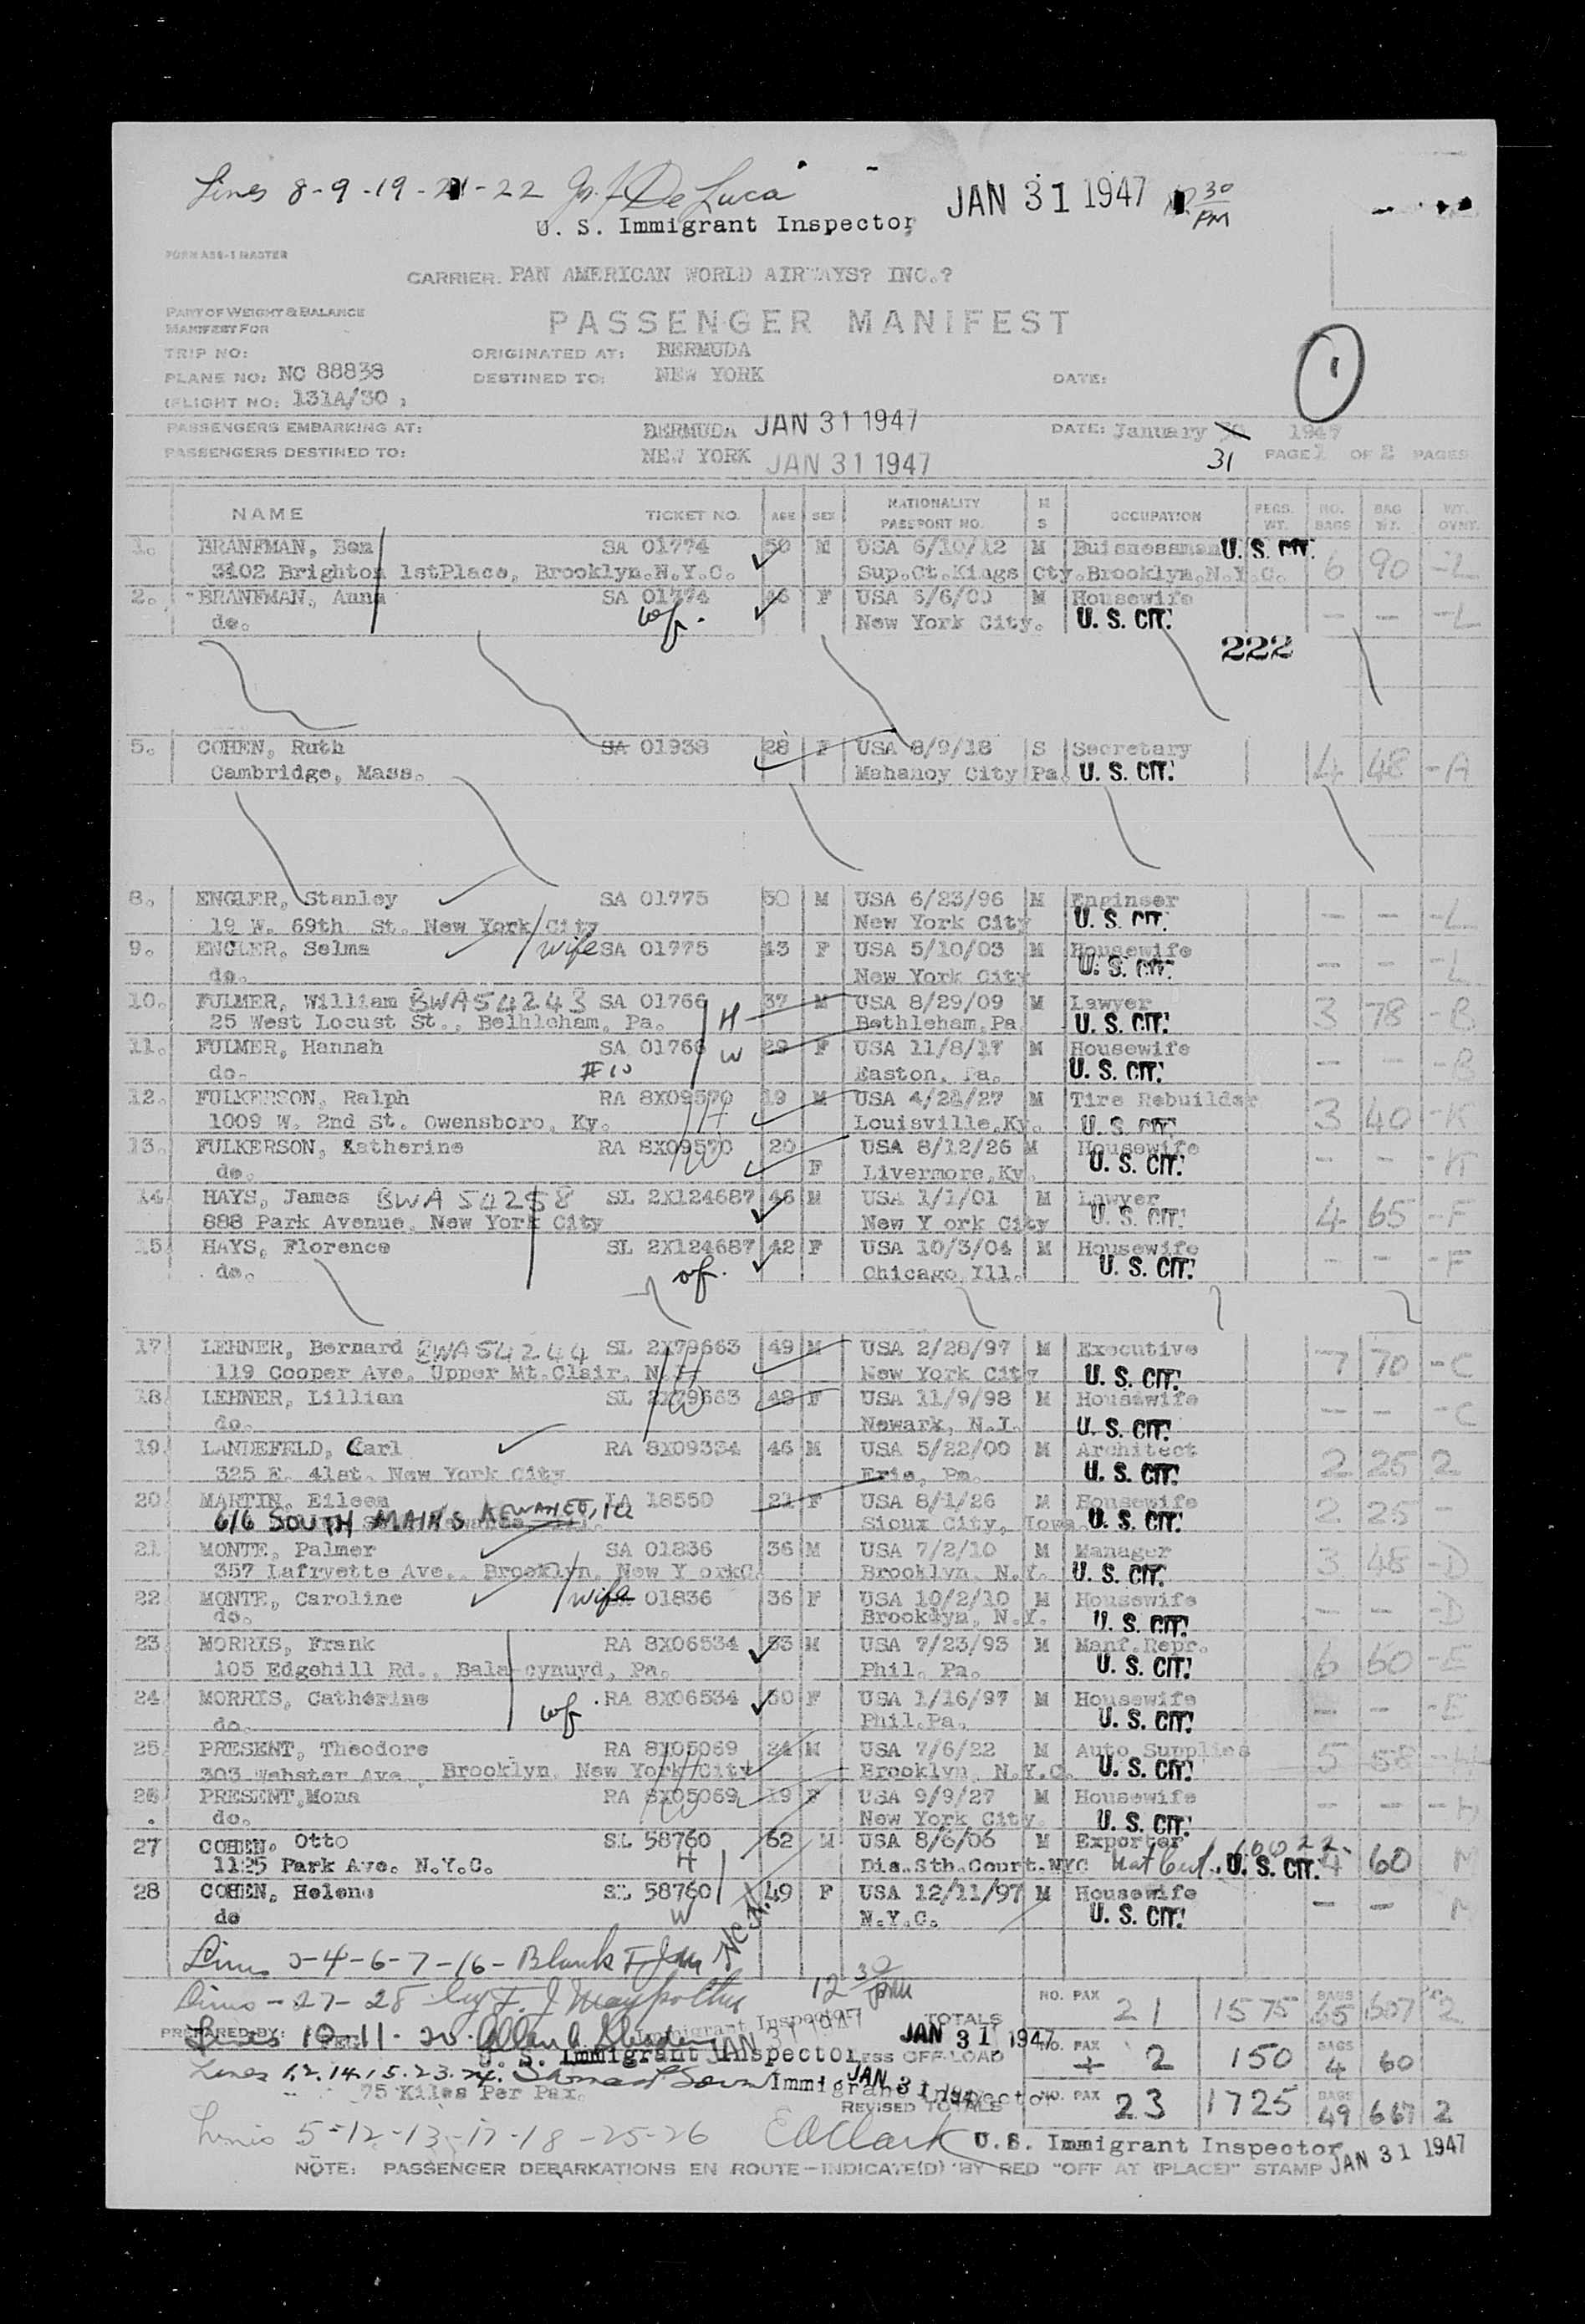 Lines 8-9-19-21-22 De Luca JAN 31 1947 30 PM
U. S. Immigrant Inspector
CARRIER. PAN AMERICAN WORLD AIRWAYS? INC.?
PART OF WEIGHT & BALANCE
MANIFEST FOR
PASSENGER MANIFEST
TRIP NO: ORIGINATED AT: BERMUDA
PLANE NO: NC 88838 DESTINED TO: NEW YORK DATE: 1
(FLIGHT NO: 131A/30 )
PASSENGERS EMBARKING AT: BERMUDA JAN 31 1947 DATE: January 1947
PASSENGERS DESTINED TO: NEW YORK JAN 31 1947 31 PAGE 1 OF 2 PAGES
NAME TICKET NO. AGE SEX NATIONALITY PASSPORT NO. M S OCCUPATION PERS. WT. NO. BAGS BAG WT. WT. OVNT.
1. BRANFMAN, Ben SA 01774 50 M USA 6/10/12 M Buisnessman U. S. CIT.
3402 Brighton 1stPlace, Brooklyn.N.Y.C. Sup.Ct.Kings Cty.Brooklyn.N.Y.C. 6 90 -L
2. BRANFMAN, Anna SA 01774 46 F USA 6/6/00 M Housewife
do. wf. New York City. U. S. CIT. - - -L
222
5. COHEN, Ruth SA 01938 28 F USA 8/9/18 S Secretary
Cambridge, Mass. Mahanoy City Pa. U. S. CIT. 4 48 -A
8. ENGLER, Stanley SA 01775 50 M USA 6/23/96 M Engineer
19 W. 69th St. New York City New York City U. S. CIT. - - -L
9. ENGLER, Selma wife SA 01775 43 F USA 5/10/03 M Housewife
do. New York City U. S. CIT. - - -L
10. FULMER, William BWA54243 SA 01766 37 M USA 8/29/09 M Lawyer
25 West Locust St., Belhleham, Pa. H Bethleham, Pa U. S. CIT. 3 78 -B
11. FULMER, Hannah SA 01766 W 29 F USA 11/8/17 M Housewife
do. #10 Easton, Pa. U. S. CIT. - - -B
12. FULKERSON, Ralph RA 8X09570 19 M USA 4/21/27 M Tire Rebuilder
1009 W. 2nd St. Owensboro, Ky. H Louisville,Ky. U. S. CIT. 3 40 -K
13. FULKERSON, Katherine RA 8X09570 20 USA 8/12/26 M Housewife
do. W F Livermore,Ky. U. S. CIT. - - -K
14 HAYS, James BWA 54258 SL 2X124687 46 M USA 1/1/01 M Lawyer
888 Park Avenue, New York City New Y ork City U. S. CIT. 4 65 -F
15 HAYS, Florence SL 2X124687 42 F USA 10/3/04 M Housewife
do. wf. Chicago Ill. U. S. CIT. - - -F
17 LEHNER, Bernard BWA54244 SL 2X79663 49 M USA 2/28/97 M Executive
119 Cooper Ave. Upper Mt.Clair, N.J. H New York City U. S. CIT. 7 70 -C
18 LEHNER, Lillian SL 2X79663 48 F USA 11/9/98 M Housewife
do. W Newark, N.J. U. S. CIT. - - -C
19 LANDEFELD, Carl RA 8X09334 46 M USA 5/22/00 M Architect
325 E. 41st. New York City Erie, Pa. U. S. CIT. 2 25 2
20 MARTIN, Eileen LA 18550 21 F USA 8/1/26 M Housewife
616 SOUTH MAIN S KEWANEE, Sioux City, Iowa. U. S. CIT. 2 25 -
21 MONTE, Palmer SA 01836 36 M USA 7/2/10 M Manager
357 Lafryette Ave., Brooklyn, New Y orkC. Brooklyn, N.Y. U. S. CIT. 3 48 -D
22 MONTE, Caroline wife 01836 36 F USA 10/2/10 M Housewife
do. Brooklyn, N.Y. U. S. CIT. - - -D
23 MORRIS, Frank RA 8X06534 53 M USA 7/23/93 M Manf.Repr.
105 Edgehill Rd., Bala-cynuyd, Pa. Phil. Pa. U. S. CIT. 6 60 -E
24 MORRIS, Catherine wf. RA 8X06534 50 F USA 1/16/97 M Housewife
do. Phil.Pa. U. S. CIT. - - -E
25 PRESENT, Theodore RA 8X05069 24 M USA 7/6/22 M Auto Supplies
303 Webster Ave., Brooklyn, New York City H Brooklyn, N.Y.C. U. S. CIT. 5 58 -H
26 PRESENT,Mona RA 8X05069 19 F USA 9/9/27 M Housewife
do. W New York City. U. S. CIT. - - -H
27 COHEN, Otto SL 58760 62 M USA 8/6/06 M Exporter
1125 Park Ave. N.Y.C. H Dis.Sth.Court.NYC U. S. CIT. 4 60 M
28 COHEN, Helene SL 58760 49 F USA 12/11/97 M Housewife
do W N.Y.C. U. S. CIT. - - M
Lines 3-4-6-7-16- Blank
Lines - 27-28 by 12 30 pm
NO. PAX 21 1575 BAGS 45 607 2
PREPARED BY: Lines 10-11-20. Immigrant Inspector JAN 31 1947 TOTALS JAN 31 1947
U. S. Immigrant Inspector LESS OFF-LOAD NO. PAX + 2 150 BAGS 4 60
Lines 1.2.14.15.23.24. Immigrant Inspector JAN 31 1947
75 Kilos Per Pax. REVISED TOTALS NO. PAX 23 1725 BAGS 49 667 2
Lines 5-12-13-17-18-25-26 EAClark U. S. Immigrant Inspector JAN 31 1947
NOTE: PASSENGER DEBARKATIONS EN ROUTE—INDICATE(D) BY RED "OFF AT (PLACE)" STAMP